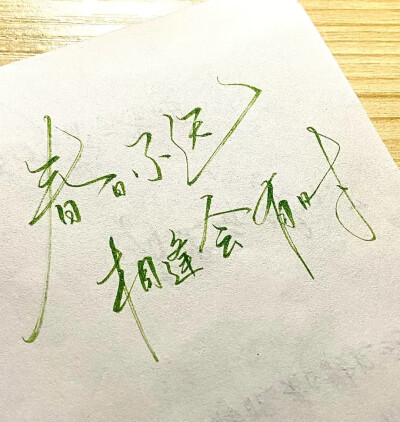 春日不迟
相逢会有时